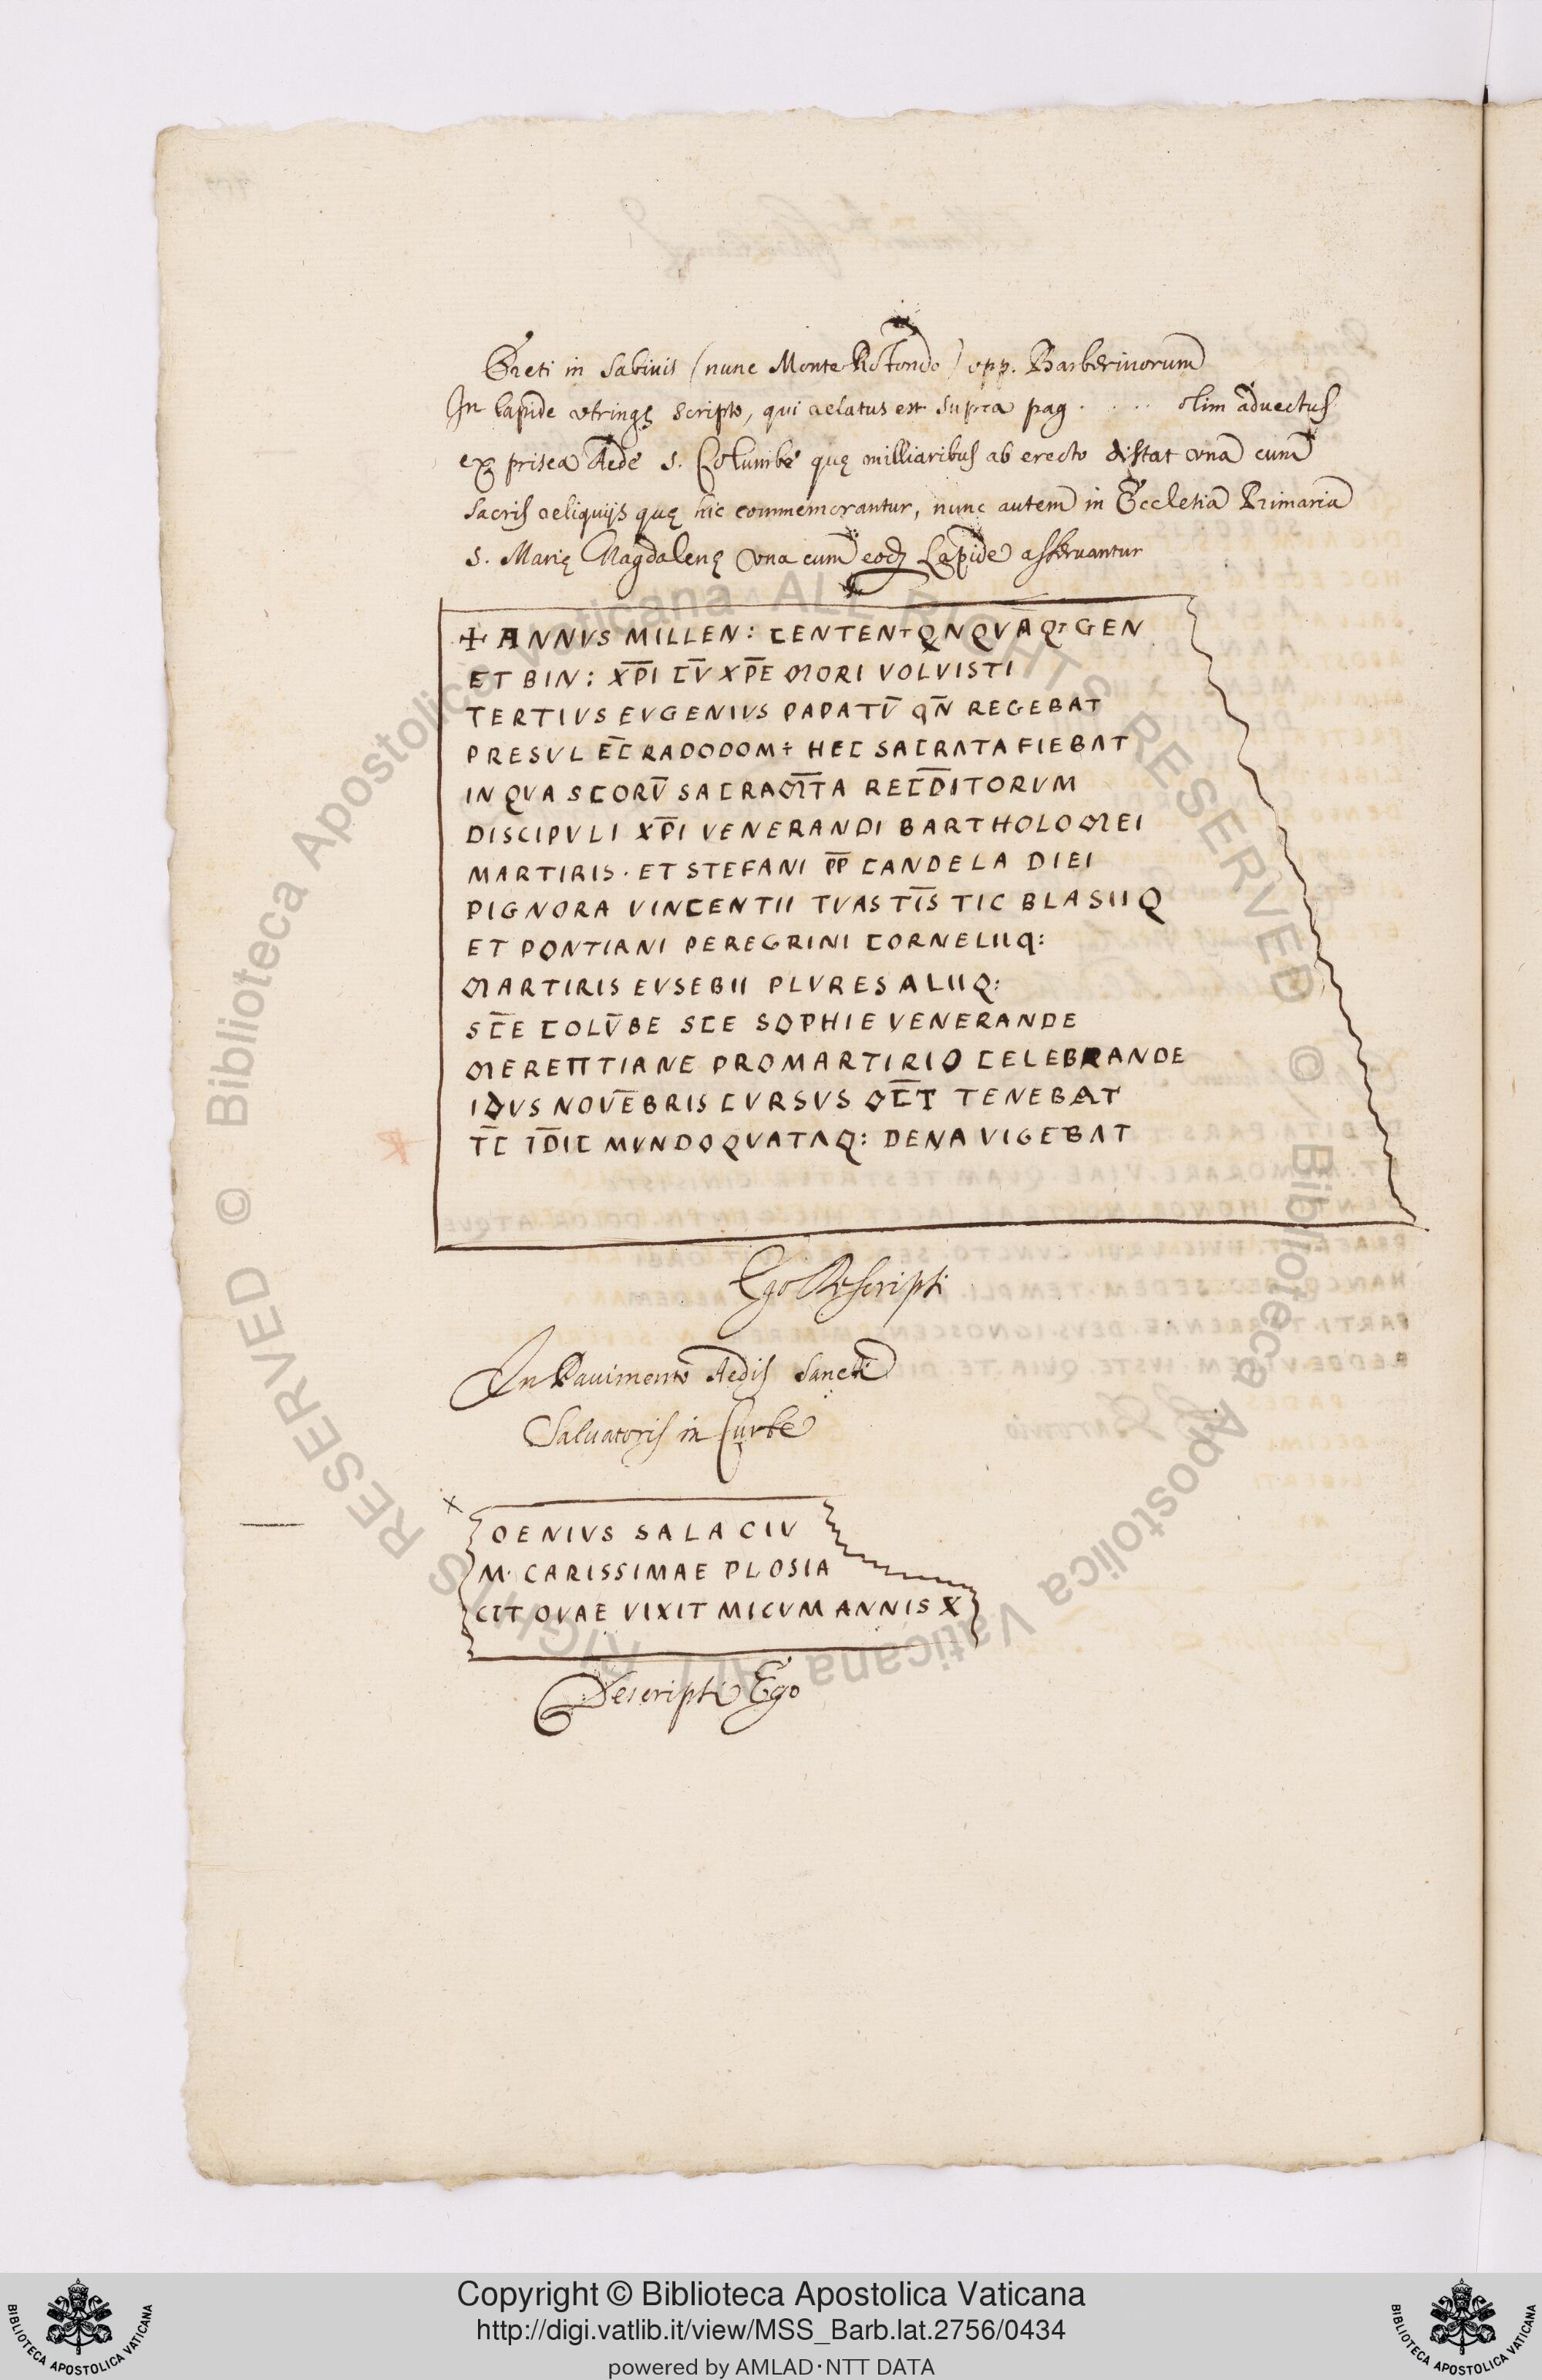 Ereti in Sabinis (nunc Monte Rotondo) opp. Barberinorum
In lapide utrinqȝ scripto, qui relatus est supra pag. . . . . olim aduectus
ex prisca Aede S. Columbę quę milliaribus ab erecto distat vna cum
sacris reliquijs quę hic commemorantur, nunc autem in Ecclesia Primaria
S. Marię Magdalenę vna cum eodȝ Lapide asseruantur
+ ANNVS MILLEN: CENTEN+ QNQVAQ+ GEN
ET BIN: XP̅I CV̅ XP̅E MORI VOLVISTI
TERTIVS EVGENIVS PAPATV̅ QN̅ REGEBAT
PRESVL EC̅ RADODOM+ HEC SACRATA FIEBAT
IN QVA SCORV̅ SACRAM̅TA REC̅D̅ITORVM
DISCIPVLI XP̅I VENERANDI BARTHOLOMEI
MARTIRIS · ET STEFANI P̅P̅ CANDELA DIEI
PIGNORA VINCENTII TVAS TI̅S TIC BLASIIQ
ET PONTIANI PEREGRINI CORNELIIQ:
MARTIRIS EVSEBII PLVRES ALIIQ:
SC̅E COLV̅BE SCE SOPHIE VENERANDE
MERENTIANE PROMARTIRIO CELEBRANDE
IDVS NOVE̅BRIS CVRSVS OC̅T TENEBAT
T̅C I̅D̅IC MVNDO QVATAQ: DENA VIGEBAT
Ego Descripsi
In Pauimento Aedis Sancti
Saluatoris in Curte
x
OENIVS SALACIV
M· CARISSIMAE PLOSIA
CIT OVAE VIXIT MICVM ANNIS X
Descripsi Ego
Copyright © Biblioteca Apostolica Vaticana
http://digi.vatlib.it/view/MSS_Barb.lat.2756/0434
powered by AMLAD·NTT DATA
BIBLIOTECA APOSTOLICA VATICANA
BIBLIOTECA APOSTOLICA VATICANA
© Biblioteca Apostolica Vaticana ALL RIGHTS RESERVED
© Biblioteca Apostolica Vaticana ALL RIGHTS RESERVED